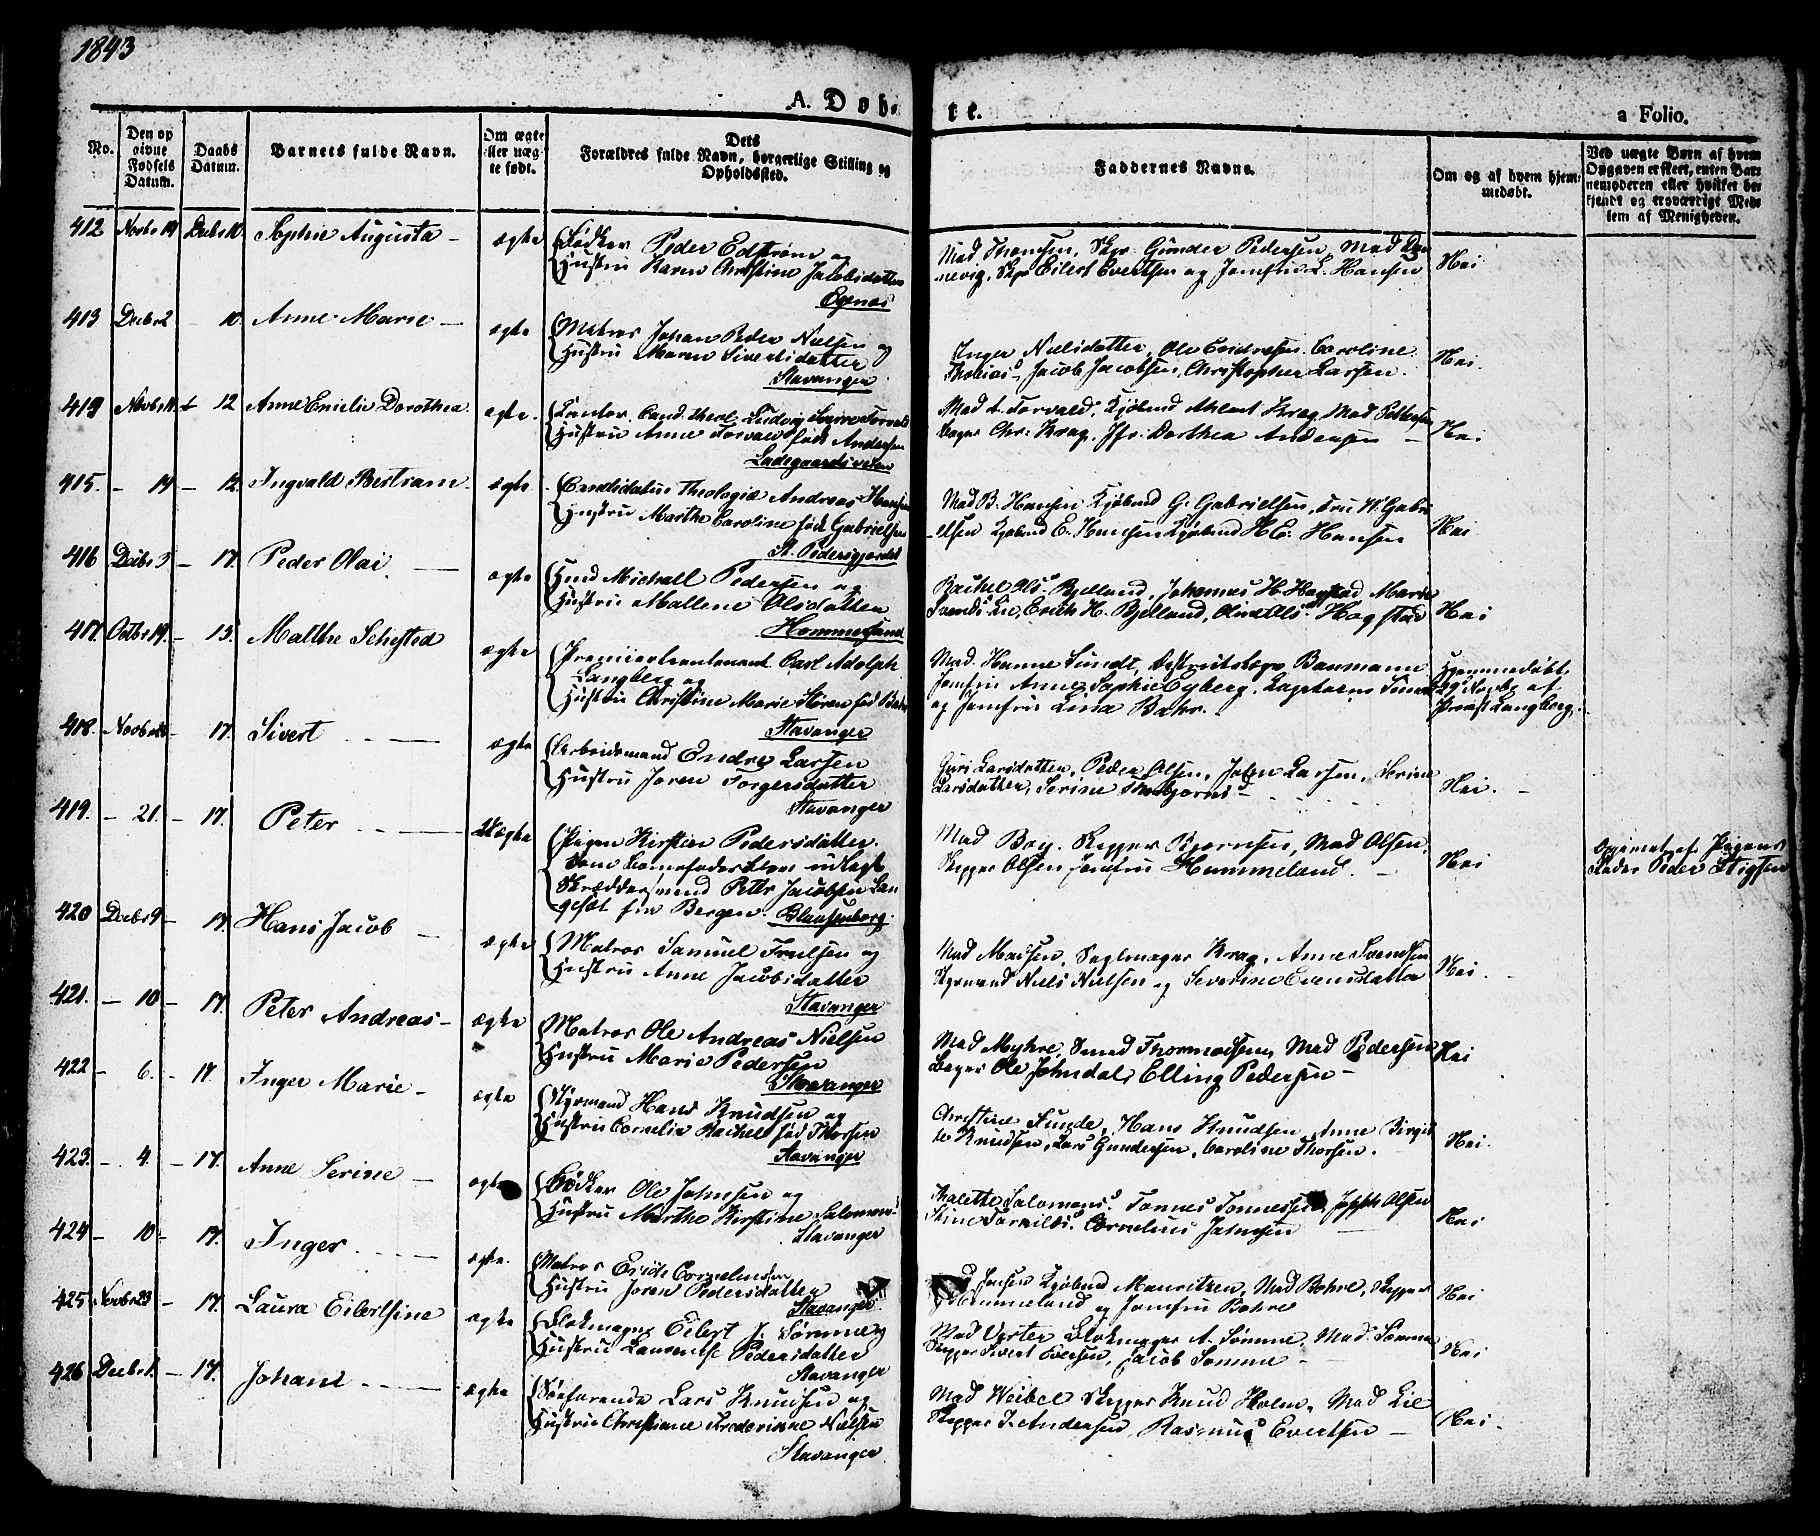 1843
A. Døbte.
a Folio.
No.
Den op
givne
Fødsels
Datum.
Daabs
Datum.
Barnets fulde Navn.
Om ægte
eller uæg
te født.
Dets
Forældres fulde Navn, borgerlige Stilling og
Opholdssted.
Faddernes Navne.
Om og af hvem hjem-
medøbt.
Ved uægte Børn af hvem
Opgaven er skeet, enten Bar
nemoderen eller hvilket be
kjendt og troværdigt Med
lem af Menigheden.
412 Novbr 14 Decbr 10. Sophie Augusta - ægte Bødker Peder Edstrøm og
Hustru Karen Christine Jacobsdatter
Egenæs
Mad Thomsen, Skpr. Gunder Pedersen, Mad Dan
nevig, Skpr Eilert Evertsen og Jomfru L. Hansen
Nei
413 Decbr 2 - 10. Anne Marie - ægte Matros Johan Peder Nielsen og
Hustru Maren Sivertsdatter
Stavanger
Inger Nielsdatter, Ole Endresen, Caroline
Thobias, Jacob Jacobsen, Christopher Larsen.
Nei.
414 Novbr 12 Anne Emilie Dorothea. ægte. Kantor, Cand. theol. Ludvig Torvald
Hustru Anne Torvald født Andersen
Ladegaardsveien
Mad A. Torvald, Kjøbmd Ahlert Krag, Mad Pettersen
Bager Chr. Krag, Jfr. Dorthea Andersen -
Nei
415. - 14 - 12. Ingvald Bertram - ægte Candidatus Theologiæ Andreas Hansen
Hustru Marthe Caroline født Gabrielsen
St. Pedersgjerdet
Mad B. Hansen Kjøbmd G. Gabrielsen, Fru W. Gabri
elsen Kjøbmd E. Hansen Kjøbmd H. E. Hansen
Nei
416 Decbr 3 - 17. Peder Olai - ægte Michall Pedersen og
Hustru Mallene Olsdatter
Hommersand
Rachel Ols. Bjelland, Johannes H. Hogstad, Marie
Svends. Lie, Erich H. Bjelland, Ols. Hogstad
Nei
417. Octbr 19. - 15. Malthe Sehested ægte Premierlieutenant Carl Adolph
Langberg og
Hustru Christine Marie Steren født Bahr
Stavanger
Mad. Hanne Sundt, Districtslæge Baumann
Jomfru Anne Sophie Eyberg, Kaptainen Sundt
og Jomfru Lina Bahr.
Hjemmedøbt
29 Novbr af
Provst Langberg.
418. Novbr - 17. Sivert - ægte Arbeidsmand Endre Larsen
Hustru Joren Torgersdatter
Stavanger
Guri Larsdatter, Peder Olsen, John Larsen, Serine
Larsdatter, Serine Thorbjørns
Nei.
419. - 21. - 17. Peter - Uægte Pigen Kirstien Pedersdatter.
som Barnefader blev udlagt
Skræddersvend Peter Jacobsen Lan
gesæt fra Bergen. Blausenborg.
Mad Bøg. Skipper Bjørnsen, Mad Olsen,
Skipper Olsen Jomfru Hummeland.
Nei
Opgivet af Pigens
Fader Peder Stigsen
420 Decbr 9 - 17. Hans Jacob - ægte Matros Samuel Trulsen og
Hustru Anne Jacobsdatter
Stavanger
Mad Madsen, Seglmager Krag, Anne Svendsen
Styrmand Niels Nielsen og Severine Evensdatter
Nei.
421. - 10 - 17. Peter Andreas - ægte Matros Ole Andreas Nielsen
Hustru Marie Pedersen
Stavanger
Mad Myhre, Smed Thormodsen, Mad Pedersen
Bager Ole Johndal, Elling Pedersen -
Nei
422 - 6. - 17. Inger Marie - ægte Styrmand Hans Knudsen og
Hustru Cornelia Rachel født Thorsen
Stavanger
Christine Funde, Hans Knudsen, Anne Birgit
te Knudsen, Lars Gundersen, Caroline Thorsen.
Nei.
423. - 4. - 17. Anne Serine - ægte Bødker Ole Johnsen og
Hustru Marthe Kirstine Salomons.
Stavanger
Thalette Salomons. Tønnes Tønnessen, Joseph Olsen
Stine Torkilds. Cornelius Johnsen
Nei
424 - 10 - 17. Inger - ægte. Matros Erich Corneliussen
Hustru Joren Pedersdatter
Stavanger
Jensen Kjøbmd Mauritzen, Mad Bohre, Skipper
Hummeland og Jomfru Bohre
Nei
425 Novbr 23 - 17. Laura Eilertsine ægte Blokmager Eilert J. Sømme og
Hustru Laurentse Pedersdatter
Stavanger
Mad Vester Blokmager A. Sømme, Mad. Sømme
Skipper Sivert Eversen, Jacob Sømme -
Nei
426 Decbr 1. - 17. Johan - ægte Søefarende Lars Knudsen og
Hustru Christiane Frederikke Nielsen
Stavanger
Mad Weibel Skipper Knud Holm, Mad Lie
Skipper J. Andersen, Rasmus Evertsen -
Nei.